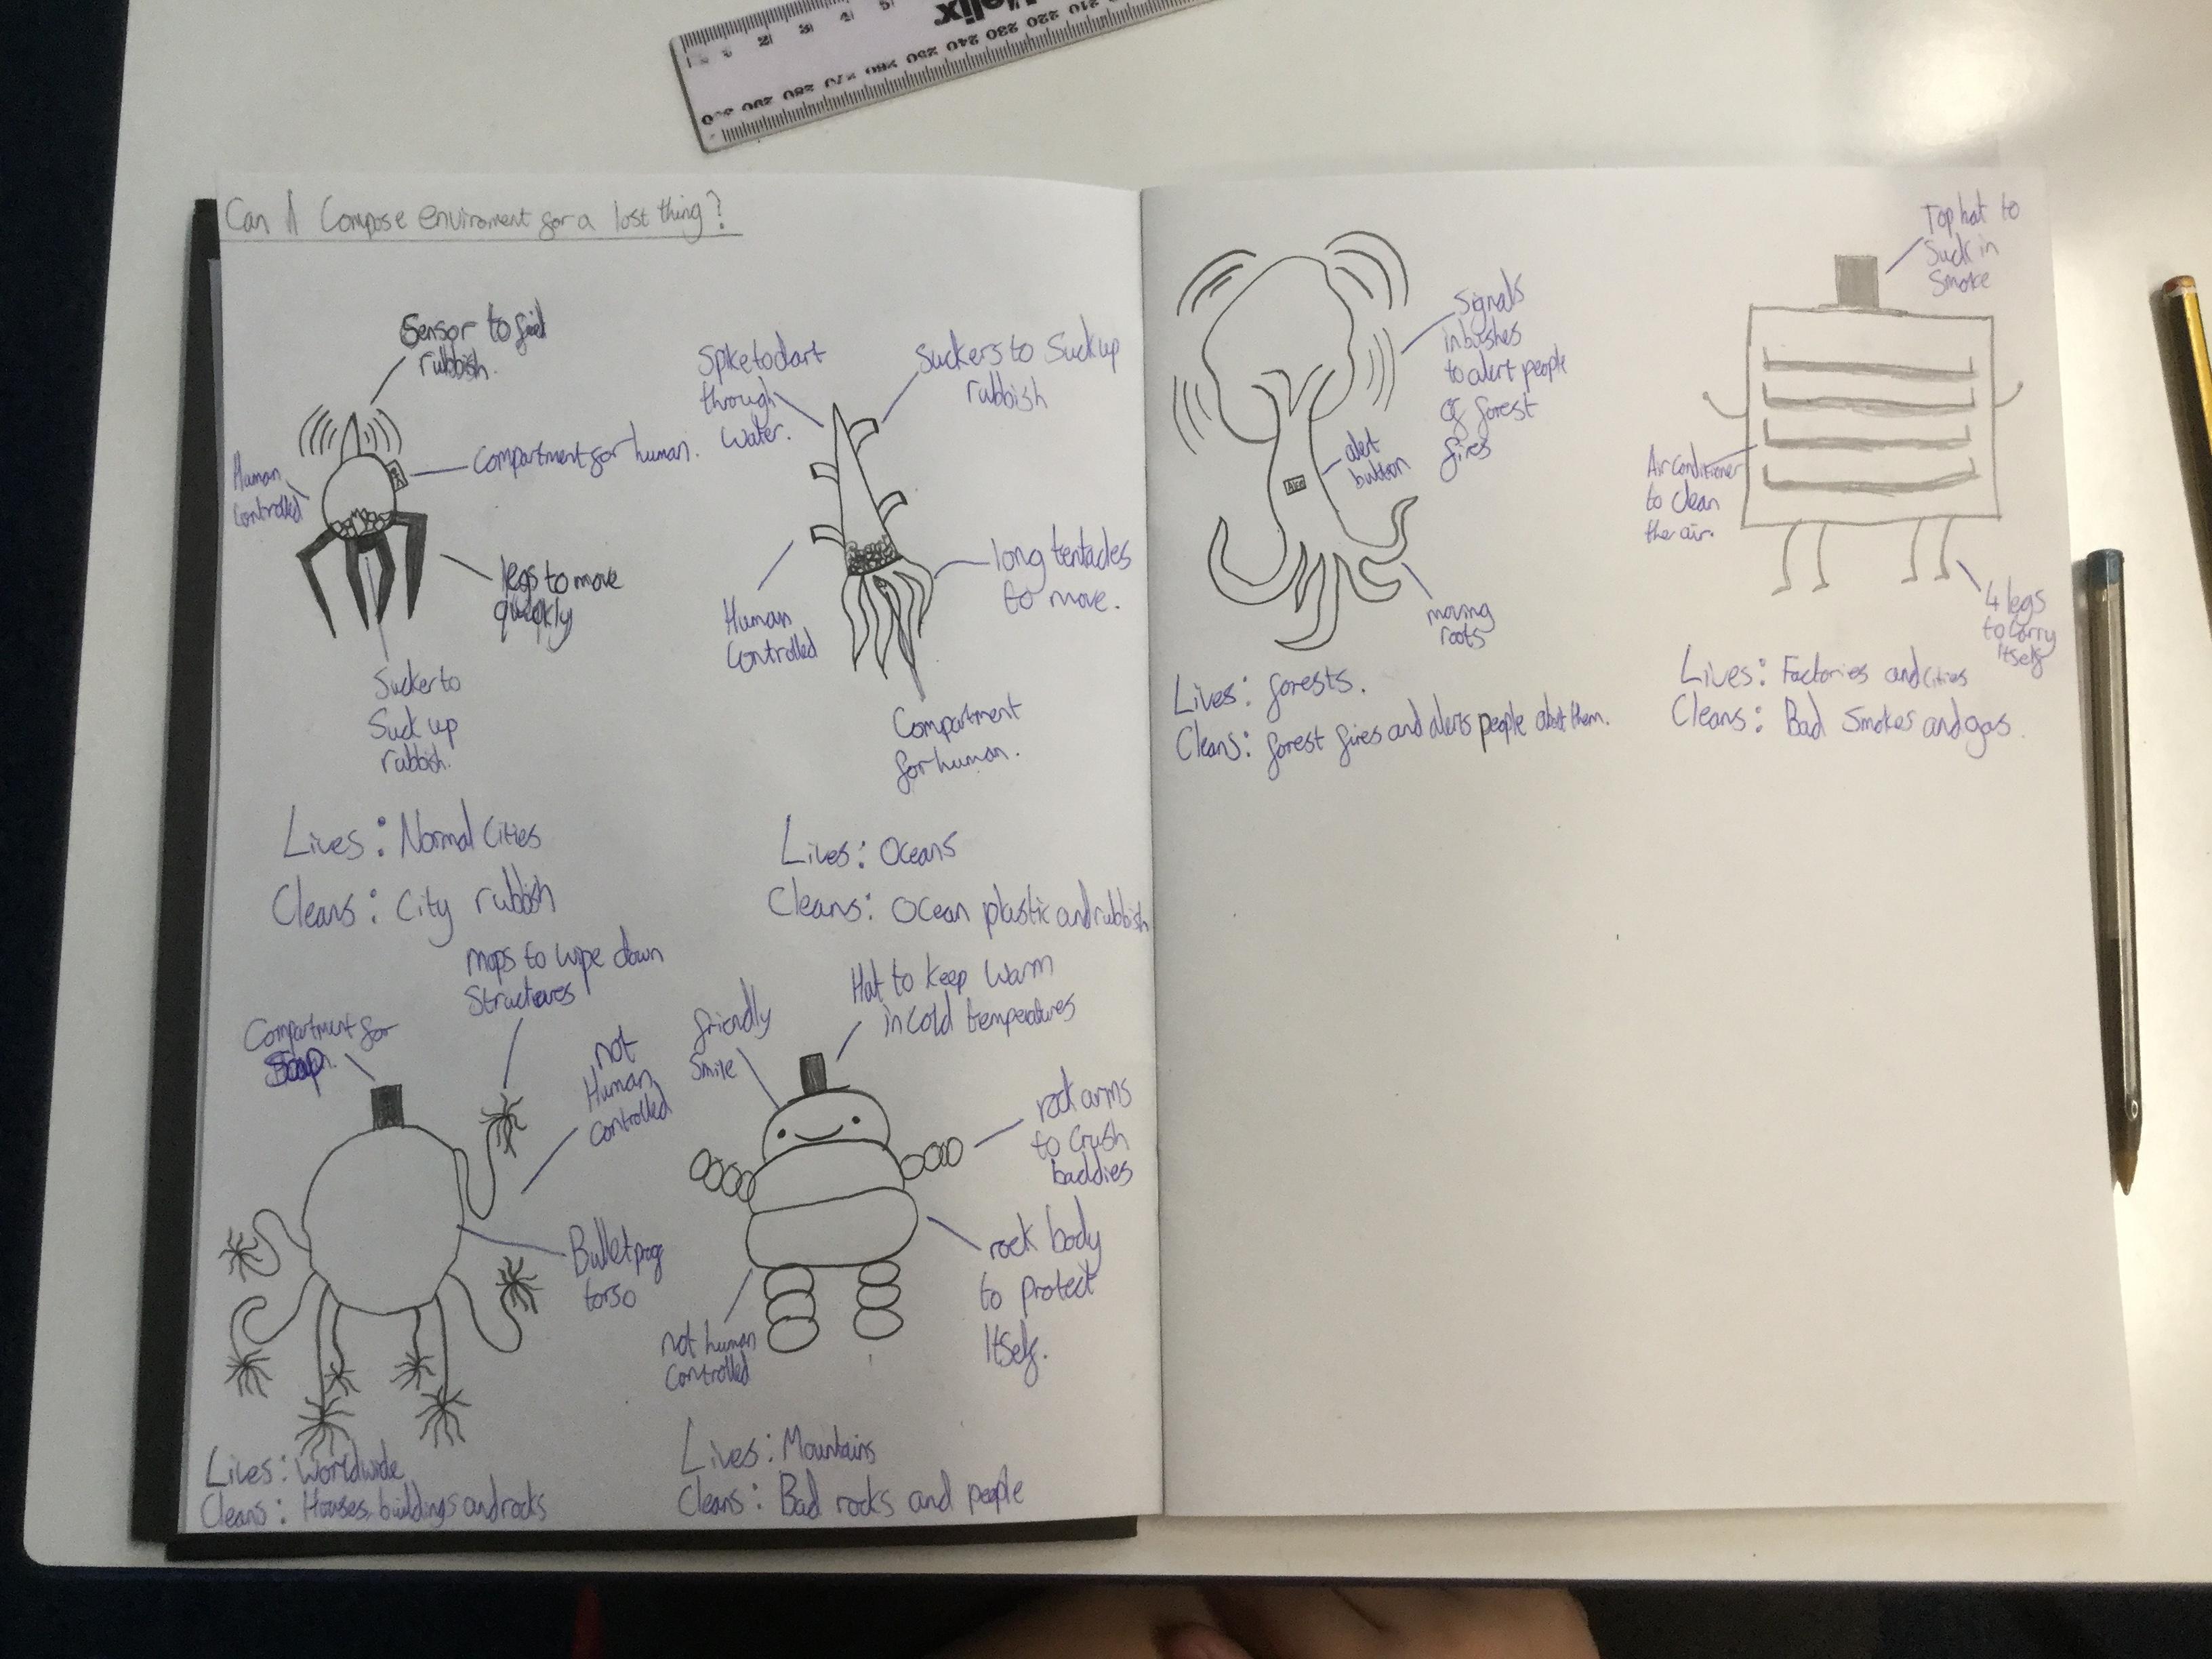 Can I Compose enviroment for a lost thing?
Sensor to find
rubbish.
Human
Controlled
Compartment for human.
legs to move
quickly
Sucker to
Suck up
rubbish.
Lives: Normal Cities
Cleans: City rubbish
Spike to dart
through
water.
Suckers to Suck up
rubbish
Human
Controlled
long tentacles
to move.
Compartment
for human.
Lives: Oceans
Cleans: Ocean plastic and rubbish
Compartment for
Soap.
mops to wipe down
not
Human
Controlled
torso
Lives: Worldwide
Cleans: Houses, buildings and rocks
friendly
Smile
Hat to keep warm
in cold temperatures
rock arms
to Crush
baddies
rock body
to protect
Itself.
not human
Controlled
Lives: Mountains
Cleans: Bad rocks and people
Signals
in bushes
to alert people
of forest
fires
alert
button
moving
roots
Lives: forests.
Cleans: forest fires and alerts people about them.
Top hat to
Suck in
Smoke
Air Conditioner
to clean
the air.
4 legs
to carry
itself
Lives: Factories and cities
Cleans: Bad Smokes and gas.
elix
1 2 3 4 5
300 290 280 270 260 250 240 230 220 210